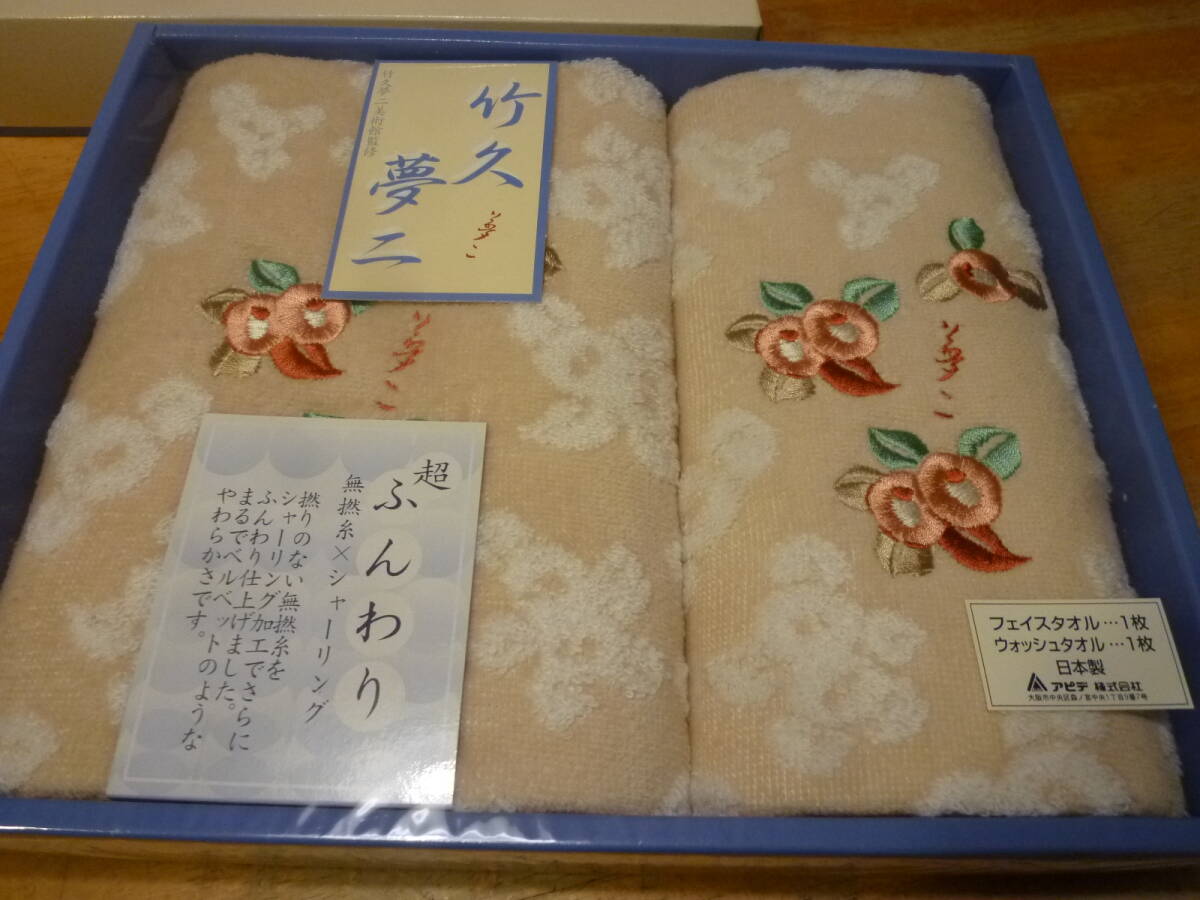 竹久
夢二
夢二
竹久夢二美術館監修
夢二
夢二
超
ふんわり
無撚糸×シャーリング
撚りのない無撚糸を
シャーリング加工でさらに
ふんわり仕上げました。
まるでベルベットのような
やわらかさです。
フェイスタオル…1枚
ウォッシュタオル…1枚
日本製
アピデ 株式会社
大阪市中央区森ノ宮中央1丁目9番7号